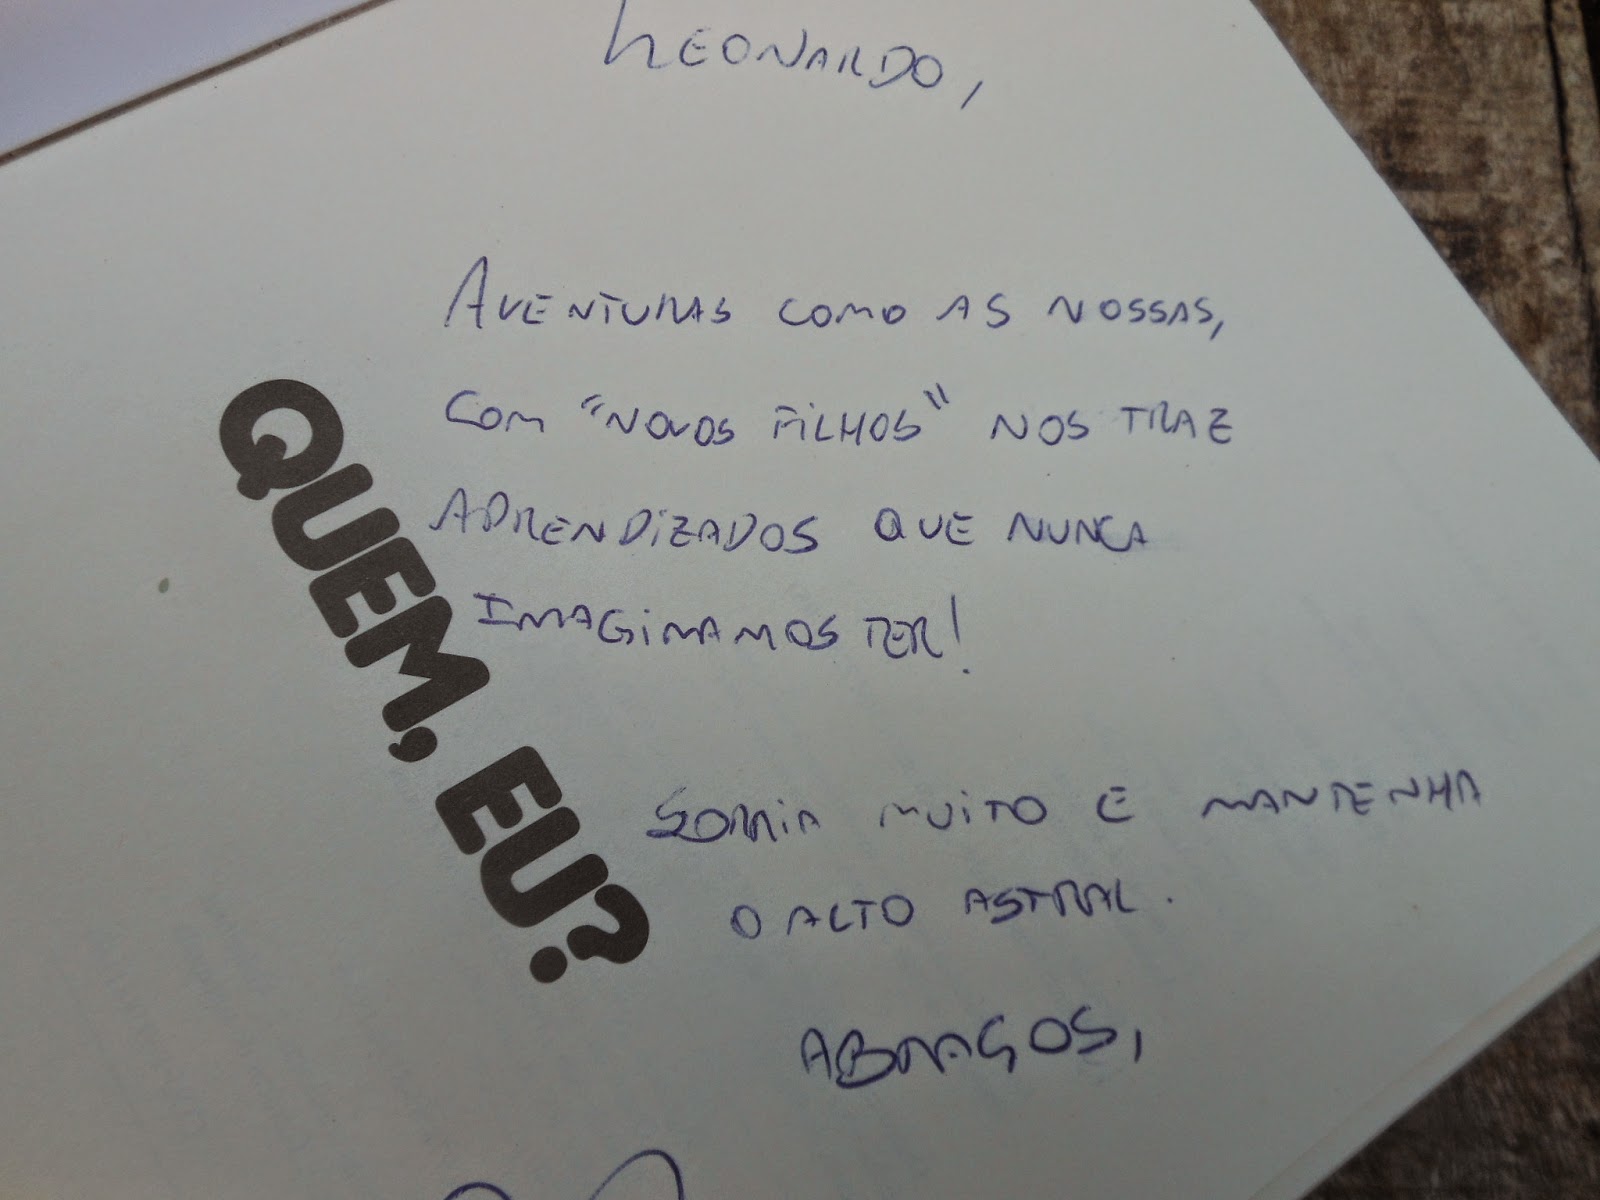 LEONARDO,
AVENTURAS COMO AS NOSSAS,
COM "NOVOS FILHOS" NOS TRAZ
APRENDIZADOS QUE NUNCA
IMAGINAMOS TER!
QUEM, EU?
SORRIA MUITO E MANTENHA
O ALTO ASTRAL.
ABRAÇOS,